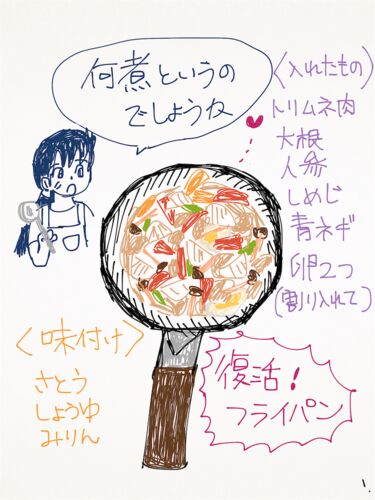 何煮というの
でしょうな
〈入れたもの〉
トリムネ肉
大根
人参
しめじ
青ネギ
卵2つ
(割り入れて)
〈味付け〉
さとう
しょうゆ
みりん
復活!
フライパン
1.